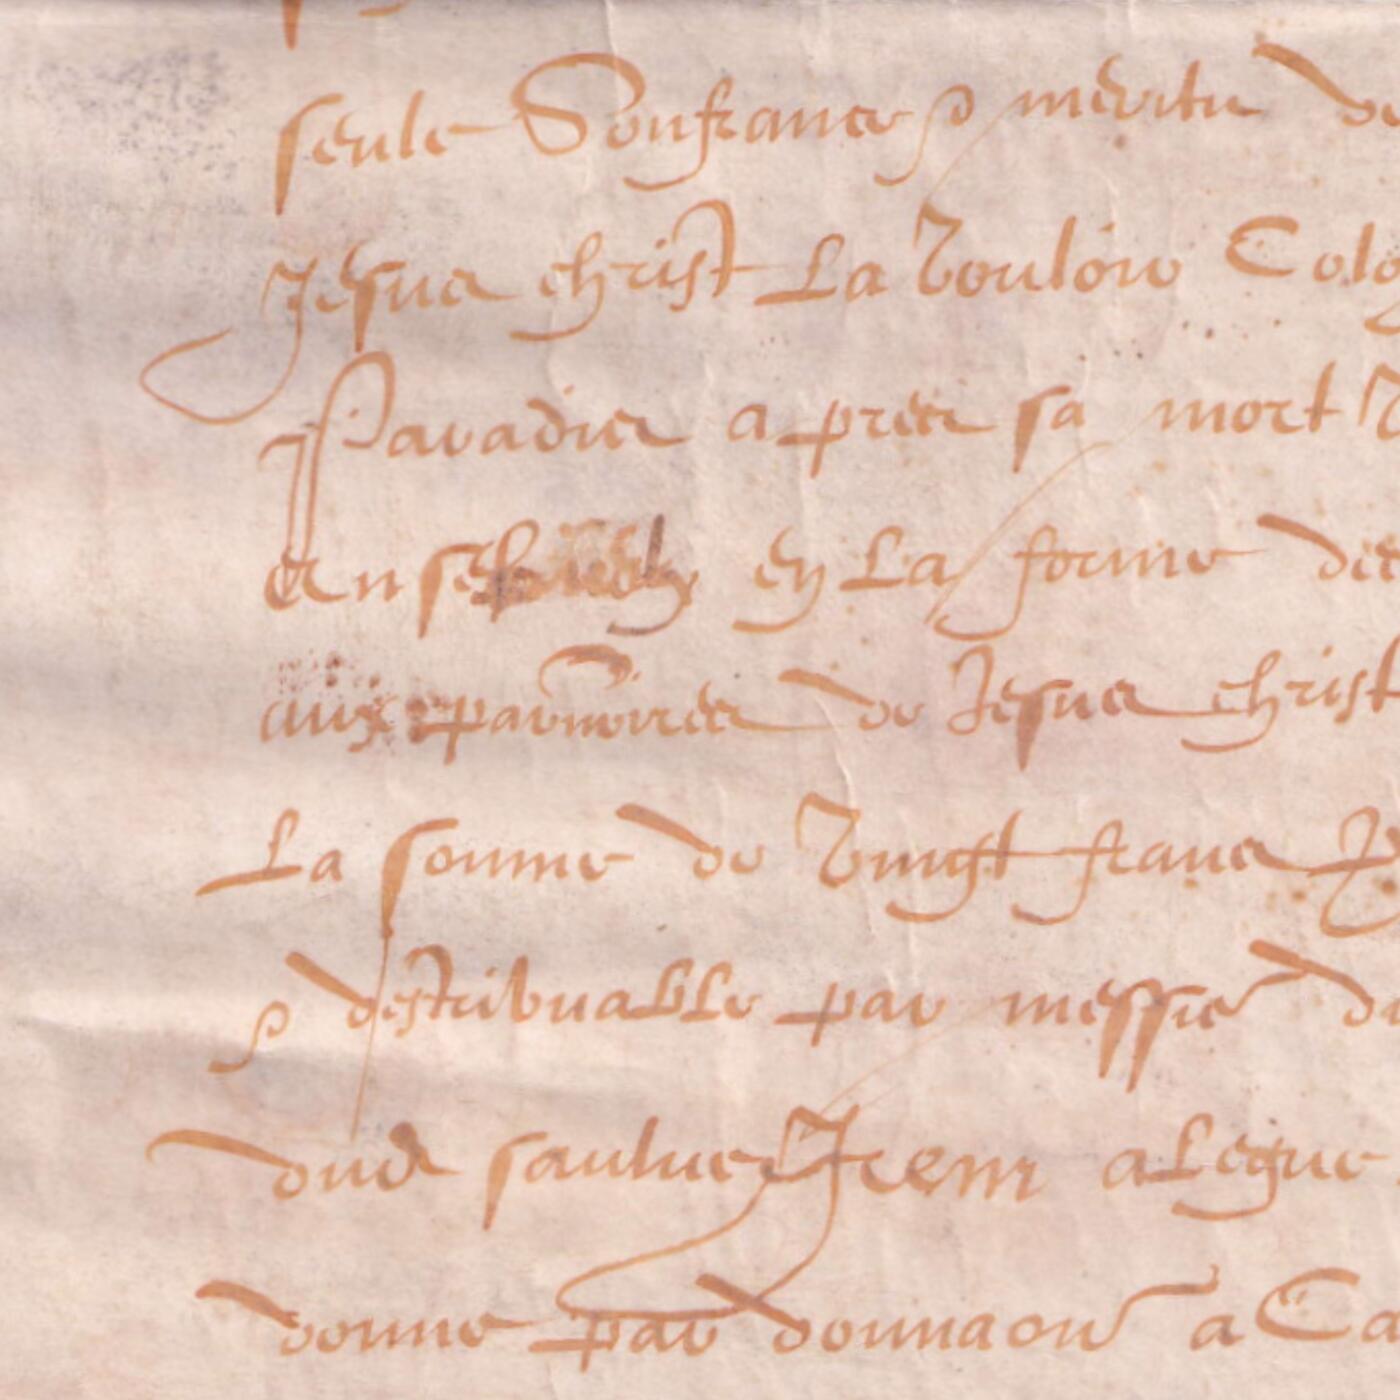 seule Soufrance & merite de
Jesus christ La Vouloir Colo
Paradis apres sa mort
Ensebely en La forme des
aux pauvres de Jesus christ
La somme de Vingt francz
& destribuable par messie de
dud saulve Item a Legue
donne par donnaon a Ca